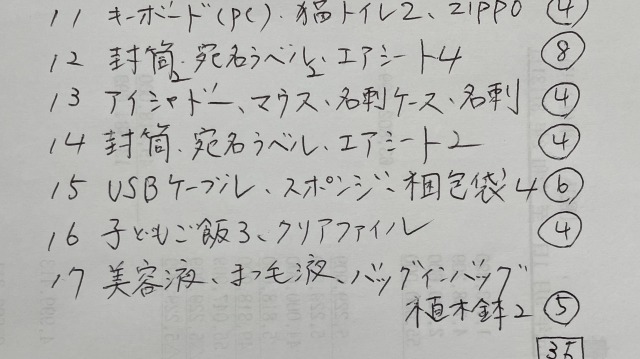 11 キーボード(PC)、猫トイレ2、ZIPPO ④
12 封筒2、宛名ラベル2、エアシート4 ⑧
13 アイシャドー、マウス、名刺ケース、名刺 ④
14 封筒、宛名ラベル、エアシート2 ④
15 USBケーブル、スポンジ、梱包袋4 ⑥
16 子どもご飯3、クリアファイル ④
17 美容液、まつ毛液、バッグインバッグ
植木鉢2 ⑤
35